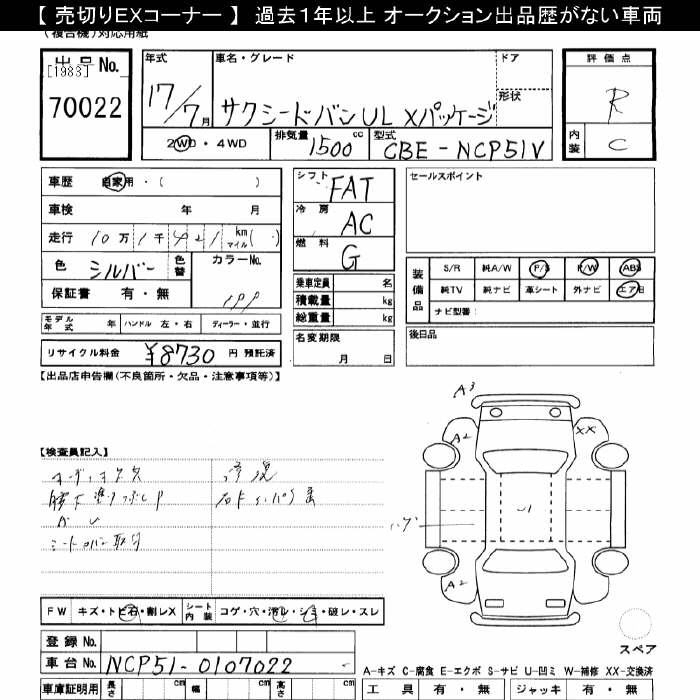 【 売切りEXコーナー 】 過去1年以上 オークション出品歴がない車両
(複合機)対応用紙
出品 No.
[1983]
70022
年式
17/7月
車名・グレード
サクシード・バン UL Xパッケージ
ドア
形状
2WD ・ 4WD
排気量 1500 cc
型式 CBE - NCP51V
評価点
R
内装 C
車歴 自家用 ・ ( )
車検 年 月
走行 10万 1千 421 km マイル( )
色 シルバー 色替 カラーNo.
199
保証書 有 ・ 無
モデル年式 年 ハンドル 左・右 ディーラー・並行
リサイクル料金 ¥8730 円 預託済
シフト FAT
冷房 AC
燃料 G
乗車定員 名
積載量 kg
総重量 kg
名変期限
月 日
セールスポイント
装備品
S/R 純A/W P/S P/W ABS
純TV 純ナビ 革シート 外ナビ エアB
ナビ型番:
後日品
【出品店申告欄(不良箇所・欠品・注意事項等)】
【検査員記入】
シートカバー取付
A3
A2
XX
ハゲ
A2
スペア
FW キズ・トビ石・割レX シート内装 コゲ・穴・汚レ・シミ・破レ・スレ
登録 No.
車台 No. NCP51-0107022
車庫証明用 長さ cm 幅 cm 高さ cm
A-キズ C-腐食 E-エクボ S-サビ U-凹ミ W-補修 XX-交換済
工具 有 ・ 無 ジャッキ 有 ・ 無